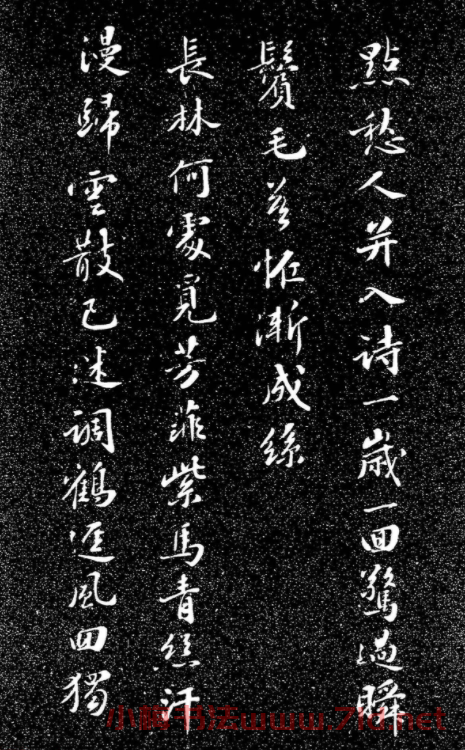 點愁人并入詩一歲一回驚過瞬
鬢毛莫恠漸成絲
長林何處覓芳菲紫馬青絲汗
漫歸雲散已迷調鶴逕風回獨
书法www.7ld.net